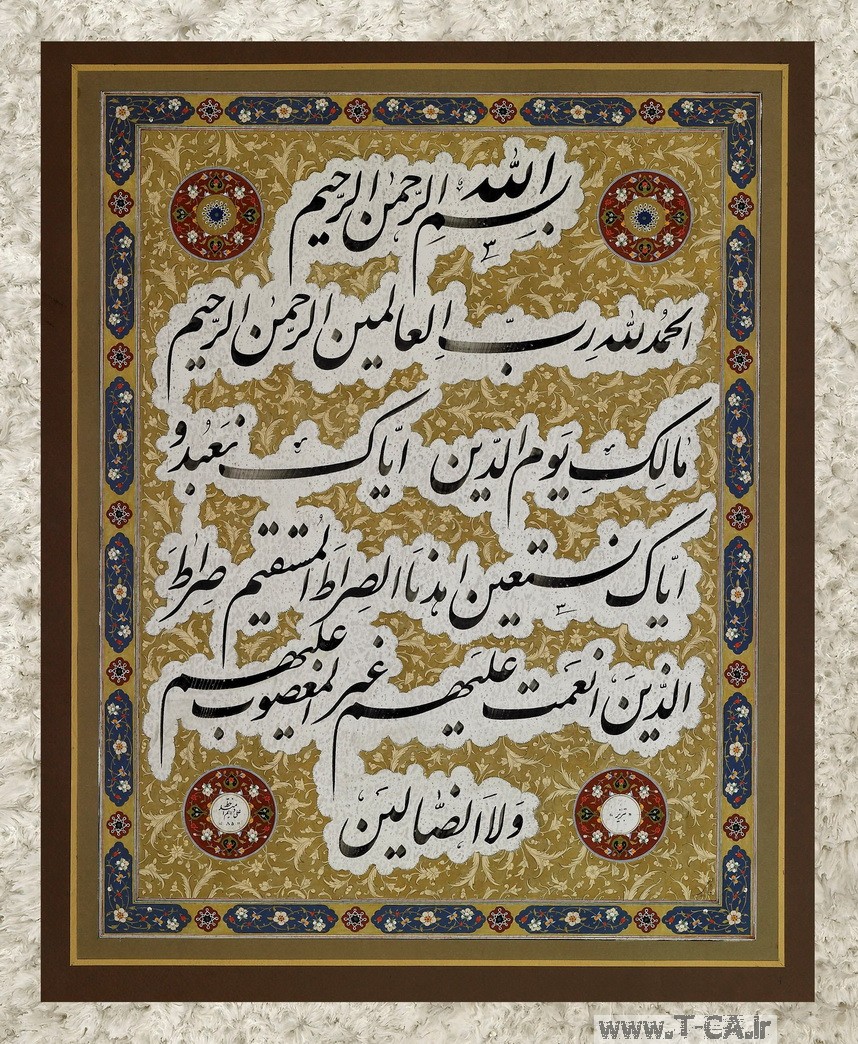 بِسمِ الله الرحمن الرحیم
الحمدُ لله ربِّ العالمین الرحمن الرحیم
مالِکِ یَوم الدّین ایّاک نَعبُدُ و
ایّاک نستعین اهدنَا الصِراطَ المُستقیم صِراطَ
الذّینَ انعَمتَ علیَهِم غیر المغضوب علیَهِم
وَلاَ الضّالینَ
تبریز
www.T-CA.ir